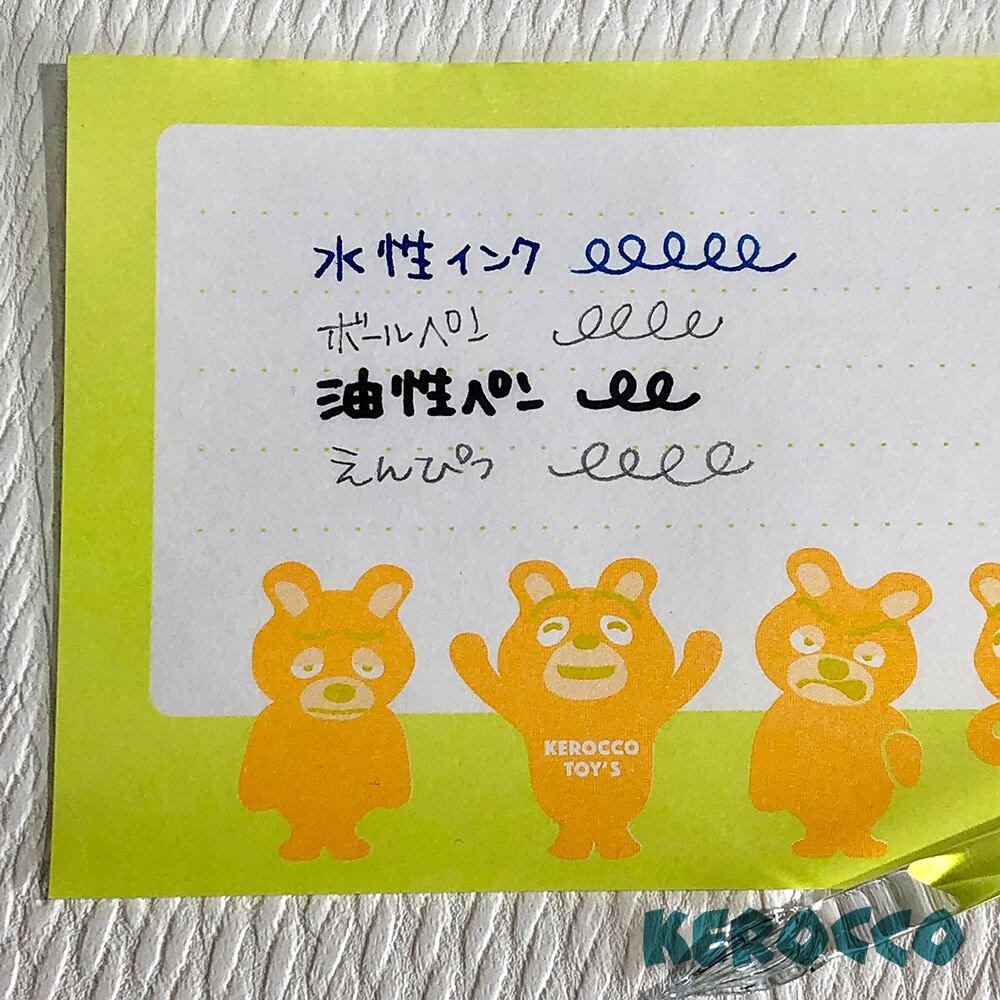 水性インク
ボールペン
油性ペン
えんぴつ
KEROCCO
TOY'S
KEROCCO